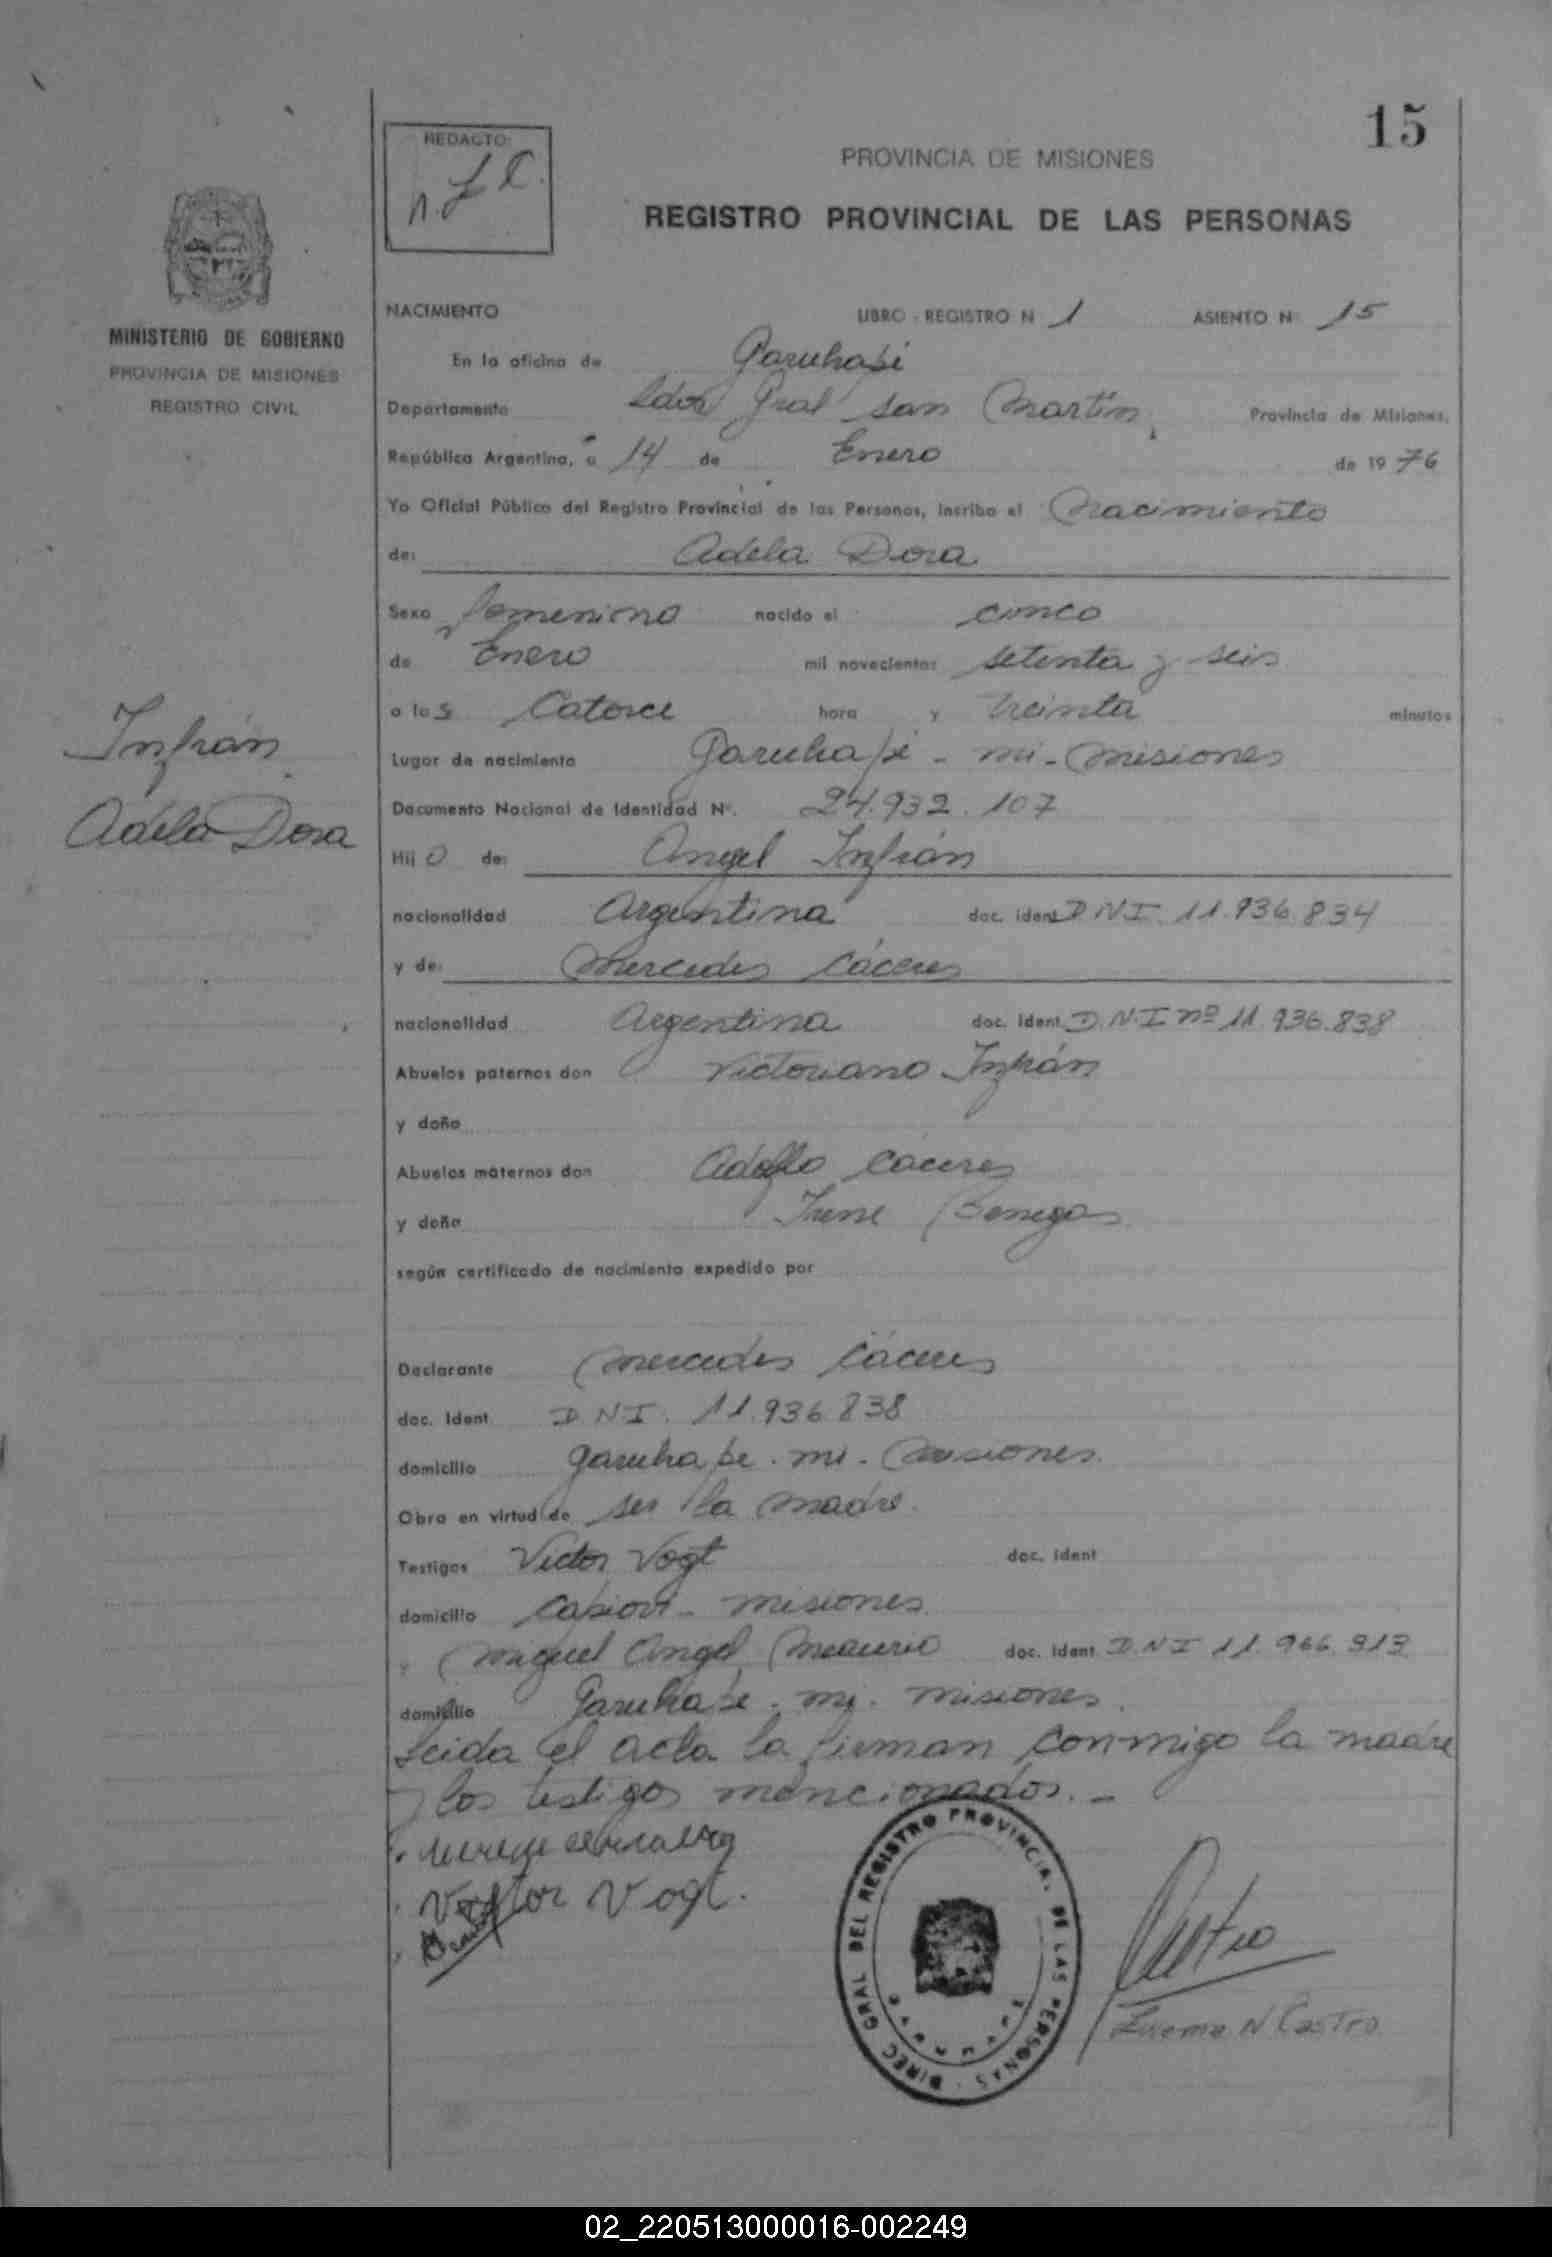 15
REDACTO:
PROVINCIA DE MISIONES
REGISTRO PROVINCIAL DE LAS PERSONAS
MINISTERIO DE GOBIERNO
PROVINCIA DE MISIONES
REGISTRO CIVIL
Infrán
Adela Dora
NACIMIENTO LIBRO - REGISTRO N 1 ASIENTO Nº 15
En la oficina de Garuhapé
Departamento Ldor Gral San Martín, Provincia de Misiones,
República Argentina, a 14 de Enero de 1976
Yo Oficial Público del Registro Provincial de las Personas, inscribo el Nacimiento
de: Adela Dora
Sexo femenino nacido el cinco
de Enero mil novecientos setenta y seis
a las Catorce hora y treinta minutos
Lugar de nacimiento Garuhapé - mi - Misiones
Documento Nacional de Identidad Nº. 24.932.107
Hij o de: Angel Infrán
nacionalidad Argentina doc. ident. D.N.I. 11.936.834
y de: Mercedes Cáceres
nacionalidad Argentina doc. ident. D.N.I nº 11.936.838
Abuelos paternos don Victoriano Infrán
y doña
Abuelos maternos don Adolfo Cáceres
y doña Irene Benegas
según certificado de nacimiento expedido por
Declarante Mercedes Cáceres
doc. Ident. D.N.I. 11.936.838
domicilio Garuhapé - mi - Misiones.
Obra en virtud de ser la madre.
Testigos Victor Vogt doc. ident
domicilio Capiovi - misiones.
y Miguel Angel doc. ident. D.N.I 11.966.313
domicilio Garuhapé - mi - misiones.
Leida el acta la firman conmigo la madre
y los testigos mencionados. -
Victor Vogt.
DIREC GRAL DEL REGISTRO PROVINCIAL DE LAS PERSONAS
Castro
N Castro
02_220513000016-002249